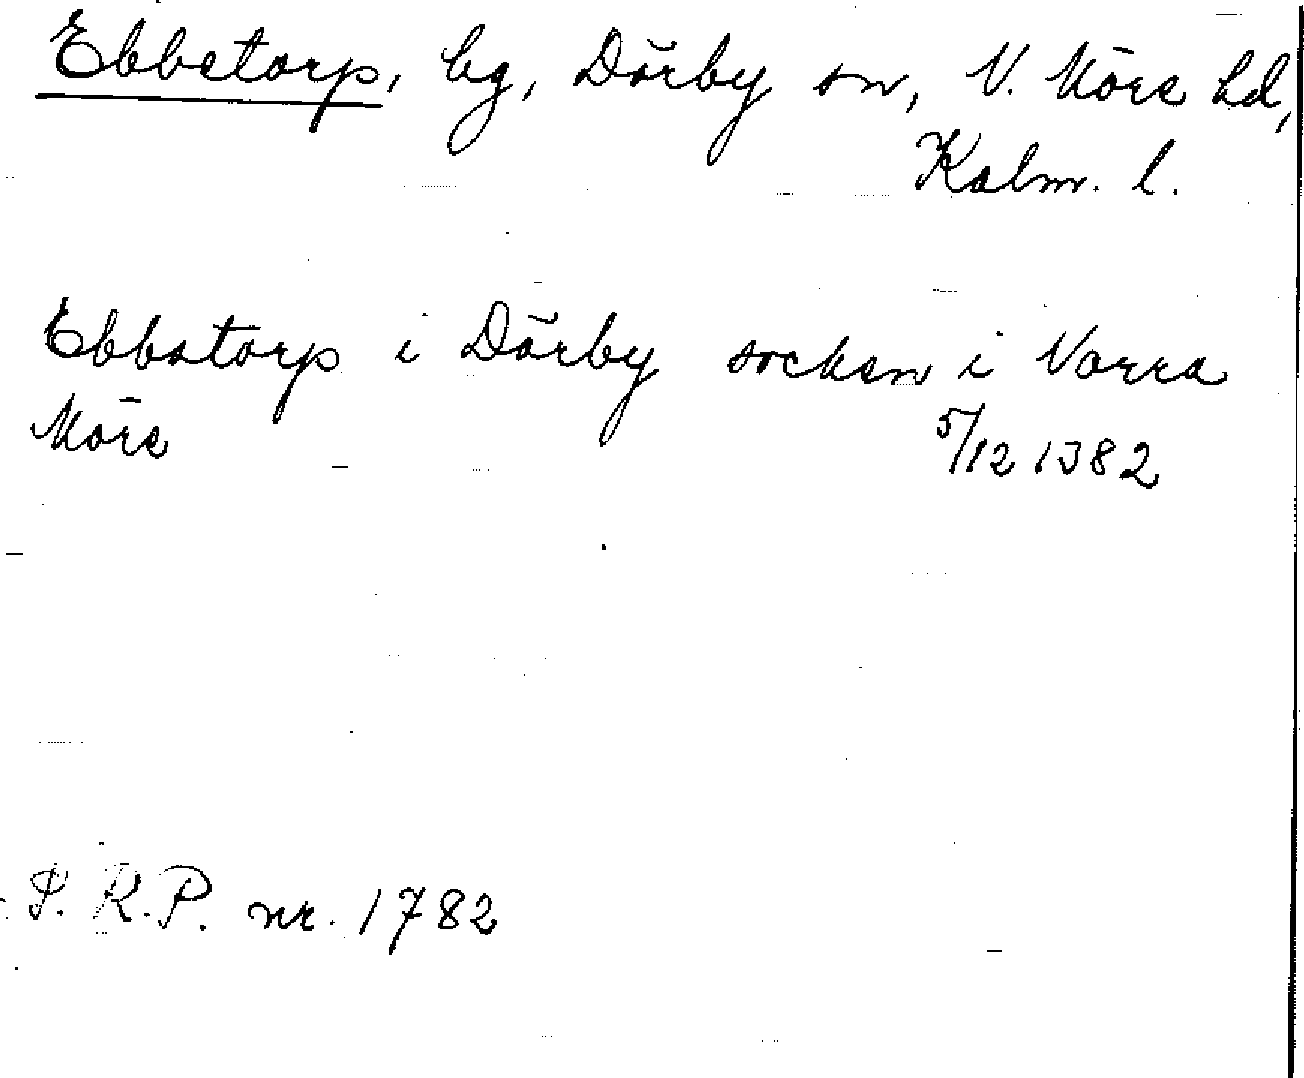 Ebbetorp, by, Dörby sn, N. Möre hd,
Kalm. l.
Ebbatorp i Dörby socken i Norra
Möre 5/12 1382
S. R. P. nr. 1782